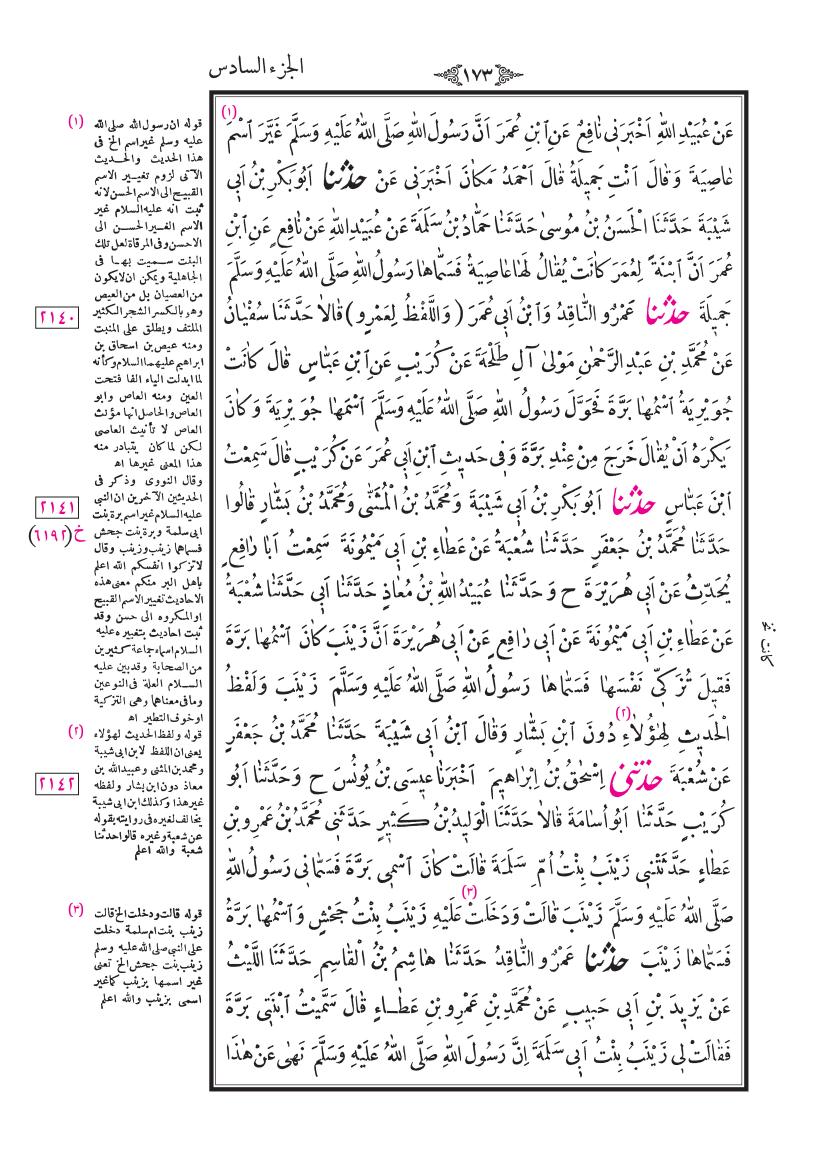 الجزء السادس
١٧٣
(١)
عَنْ عُبَيْدِ اللّٰهِ اَخْبَرَنِى نَافِعٌ عَنِ ابْنِ عُمَرَ اَنَّ رَسُولَ اللّٰهِ صَلَّى اللّٰهُ عَلَيْهِ وَسَلَّمَ غَيَّرَ اسْمَ
عَاصِيَةَ وَقَالَ اَنْتِ جَمِيلَةُ قَالَ اَحْمَدُ مَكَانَ اَخْبَرَنِى عَنْ حَدَّثَنَا اَبُوبَكْرِ بْنُ اَبِى
شَيْبَةَ حَدَّثَنَا الْحَسَنُ بْنُ مُوسٰى حَدَّثَنَا حَمَّادُ بْنُ سَلَمَةَ عَنْ عُبَيْدِاللّٰهِ عَنْ نَافِعٍ عَنِ ابْنِ
عُمَرَ اَنَّ ابْنَةً لِعُمَرَ كَانَتْ يُقَالُ لَهَا عَاصِيَةُ فَسَمَّاهَا رَسُولُ اللّٰهِ صَلَّى اللّٰهُ عَلَيْهِ وَسَلَّمَ
جَمِيلَةَ حَدَّثَنَا عَمْرٌو النَّاقِدُ وَابْنُ اَبِى عُمَرَ (وَاللَّفْظُ لِعَمْرٍو) قَالَا حَدَّثَنَا سُفْيَانُ
عَنْ مُحَمَّدِ بْنِ عَبْدِ الرَّحْمٰنِ مَوْلٰى آلِ طَلْحَةَ عَنْ كُرَيْبٍ عَنِ ابْنِ عَبَّاسٍ قَالَ كَانَتْ
جُوَيْرِيَةُ اسْمُهَا بَرَّةَ فَحَوَّلَ رَسُولُ اللّٰهِ صَلَّى اللّٰهُ عَلَيْهِ وَسَلَّمَ اسْمَهَا جُوَيْرِيَةَ وَكَانَ
يَكْرَهُ اَنْ يُقَالَ خَرَجَ مِنْ عِنْدِ بَرَّةَ وَفِى حَدِيثِ ابْنِ اَبِى عُمَرَ عَنْ كُرَيْبٍ قَالَ سَمِعْتُ
ابْنَ عَبَّاسٍ حَدَّثَنَا اَبُوبَكْرِ بْنُ اَبِى شَيْبَةَ وَمُحَمَّدُ بْنُ الْمُثَنّٰى وَمُحَمَّدُ بْنُ بَشَّارٍ قَالُوا
حَدَّثَنَا مُحَمَّدُ بْنُ جَعْفَرٍ حَدَّثَنَا شُعْبَةُ عَنْ عَطَاءِ بْنِ اَبِى مَيْمُونَةَ سَمِعْتُ اَبَا رَافِعٍ
يُحَدِّثُ عَنْ اَبِى هُرَيْرَةَ ح وَحَدَّثَنَا عُبَيْدُ اللّٰهِ بْنُ مُعَاذٍ حَدَّثَنَا اَبِى حَدَّثَنَا شُعْبَةُ
عَنْ عَطَاءِ بْنِ اَبِى مَيْمُونَةَ عَنْ اَبِى رَافِعٍ عَنْ اَبِى هُرَيْرَةَ اَنَّ زَيْنَبَ كَانَ اسْمُهَا بَرَّةَ
فَقِيلَ تُزَكِّى نَفْسَهَا فَسَمَّاهَا رَسُولُ اللّٰهِ صَلَّى اللّٰهُ عَلَيْهِ وَسَلَّمَ زَيْنَبَ وَلَفْظُ
الْحَدِيثِ لِهٰؤُلَاءِ (٢) دُونَ ابْنِ بَشَّارٍ وَقَالَ ابْنُ اَبِى شَيْبَةَ حَدَّثَنَا مُحَمَّدُ بْنُ جَعْفَرٍ
عَنْ شُعْبَةَ حَدَّثَنِى اِسْحٰقُ بْنُ اِبْرَاهِيمَ اَخْبَرَنَا عِيسَى بْنُ يُونُسَ ح وَحَدَّثَنَا اَبُو
كُرَيْبٍ حَدَّثَنَا اَبُو اُسَامَةَ قَالَا حَدَّثَنَا الْوَلِيدُ بْنُ كَثِيرٍ حَدَّثَنِى مُحَمَّدُ بْنُ عَمْرِو بْنِ
عَطَاءٍ حَدَّثَتْنِى زَيْنَبُ بِنْتُ اُمِّ سَلَمَةَ قَالَتْ كَانَ اسْمِى بَرَّةَ فَسَمَّانِى رَسُولُ اللّٰهِ
صَلَّى اللّٰهُ عَلَيْهِ وَسَلَّمَ زَيْنَبَ قَالَتْ وَدَخَلَتْ (٣) عَلَيْهِ زَيْنَبُ بِنْتُ جَحْشٍ وَاسْمُهَا بَرَّةُ
فَسَمَّاهَا زَيْنَبَ حَدَّثَنَا عَمْرٌو النَّاقِدُ حَدَّثَنَا هَاشِمُ بْنُ الْقَاسِمِ حَدَّثَنَا اللَّيْثُ
عَنْ يَزِيدَ بْنِ اَبِى حَبِيبٍ عَنْ مُحَمَّدِ بْنِ عَمْرِو بْنِ عَطَاءٍ قَالَ سَمَّيْتُ ابْنَتِى بَرَّةَ
فَقَالَتْ لِى زَيْنَبُ بِنْتُ اَبِى سَلَمَةَ اِنَّ رَسُولَ اللّٰهِ صَلَّى اللّٰهُ عَلَيْهِ وَسَلَّمَ نَهٰى عَنْ هٰذَا
كانت نخ
(١) قوله ان رسول الله صلى الله
عليه وسلم غير اسم الخ فى
هذا الحديث والحديث
الآتى لزوم تغيير الاسم
القبيح الى الاسم الحسن لانه
ثبت انه عليه السلام غير
الاسم الغير الحسن الى
الاحسن وفى المرقاة لعل تلك
البنت سميت بها فى
الجاهلية ويمكن ان لايكون
من العصيان بل من العيص
وهو بالكسر الشجر الكثير
الملتف ويطلق على المنبت
ومنه عيص بن اسحاق بن
ابراهيم عليهما السلام وكأنه
لما ابدلت الياء الفا فتحت
العين ومنه العاص وابو
العاص والحاصل انها مؤنث
العاص لا تأنيث العاصى
لكن لما كان يتبادر منه
هذا المعنى غيرها اه
وقال النووى وذكر فى
الحديثين الآخرين ان النبى
عليه السلام غير اسم برة بنت
ابى سلمة وبرة بنت جحش
فسماهما زينب وزينب وقال
لاتزكوا انفسكم الله اعلم
باهل البر منكم معنى هذه
الاحاديث تغيير الاسم القبيح
او المكروه الى حسن وقد
ثبت احاديث بتغييره عليه
السلام اسماء جماعة كثيرين
من الصحابة وقد بين عليه
السلام العلة فى النوعين
وما فى معناهما وهى التزكية
او خوف التطير اه
(٢) قوله ولفظ الحديث لهؤلاء
يعنى ان اللفظ لابن ابى شيبة
ومحمد بن المثنى وعبيدالله بن
معاذ دون ابن بشار ولفظه
غير هذا وكذلك ابن ابى شيبة
يخالف لغيره فى روايته بقوله
عن شعبة وغيره قالوا حدثنا
شعبة والله اعلم
(٣) قوله قالت ودخلت الخ قالت
زينب بنت ام سلمة دخلت
على النبى صلى الله عليه وسلم
زينب بنت جحش الخ تعنى
غير اسمها بزينب كما غير
اسمى بزينب والله اعلم
٢١٤٠
٢١٤١
خ (٦١٩٢)
٢١٤٢